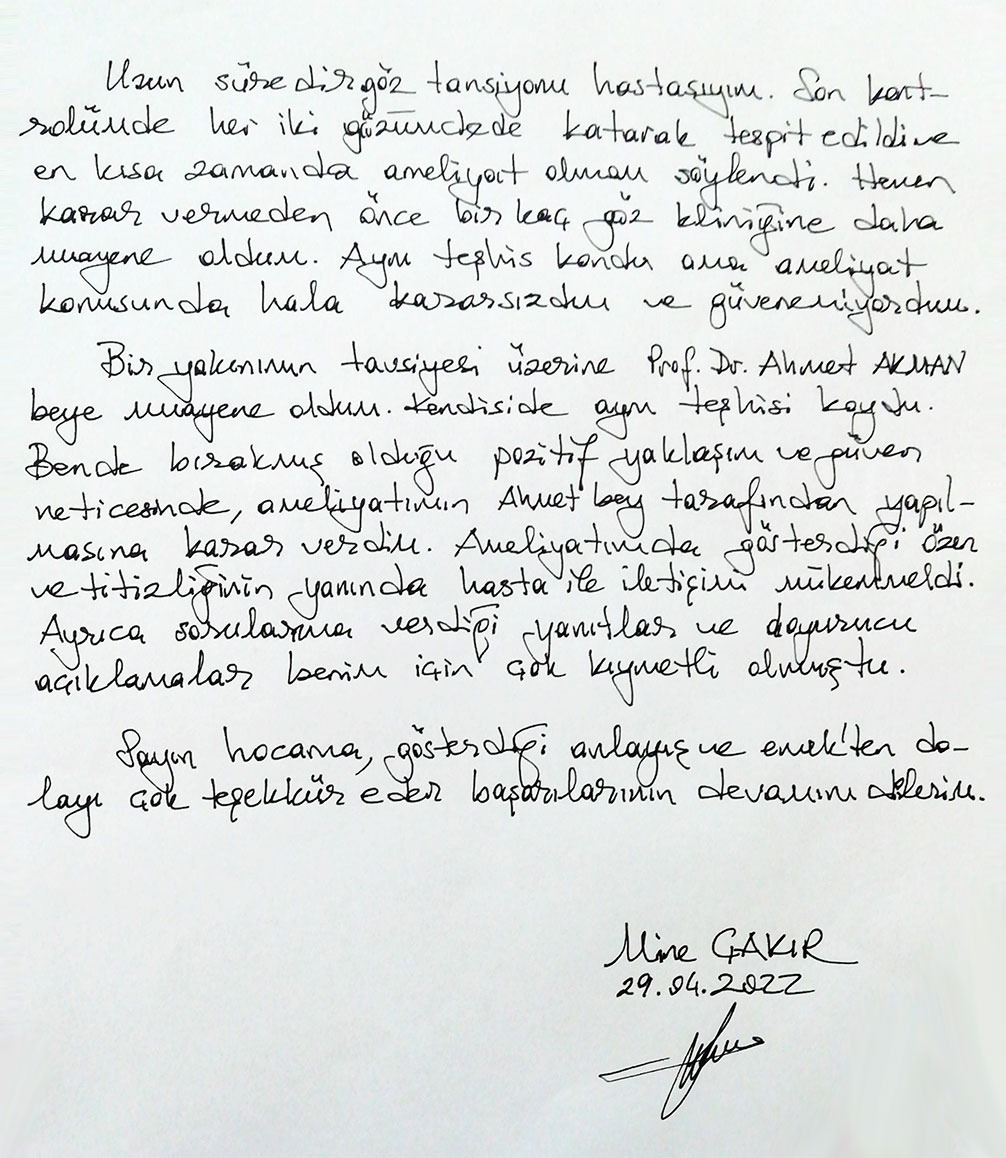 Uzun süredir göz tansiyonu hastasıyım. Son kont-
rolümde her iki gözümdede katarak tespit edildi ve
en kısa zamanda ameliyat olmam söylendi. Hemen
karar vermeden önce bir kaç göz kliniğine daha
muayene oldum. Aynı teşhis kondu ama ameliyat
konusunda hala kararsızdım ve güvenemiyordum.
Bir yakınımın tavsiyesi üzerine Prof. Dr. Ahmet AKMAN
beye muayene oldum. Kendiside aynı teşhisi koydu.
Bende bırakmış olduğu pozitif yaklaşım ve güven
neticesinde, ameliyatımın Ahmet bey tarafından yapıl-
masına karar verdim. Ameliyatımda gösterdiği özen
ve titizliğinin yanında hasta ile iletişimi mükemmeldi.
Ayrıca sorularıma verdiği yanıtlar ve doyurucu
açıklamalar benim için çok kıymetli olmuştu.
Sayın hocama, gösterdiği anlayış ve emek'ten do-
layı çok teşekkür eder başarılarının devamını dilerim.
Mine ÇAKIR
29.04.2022